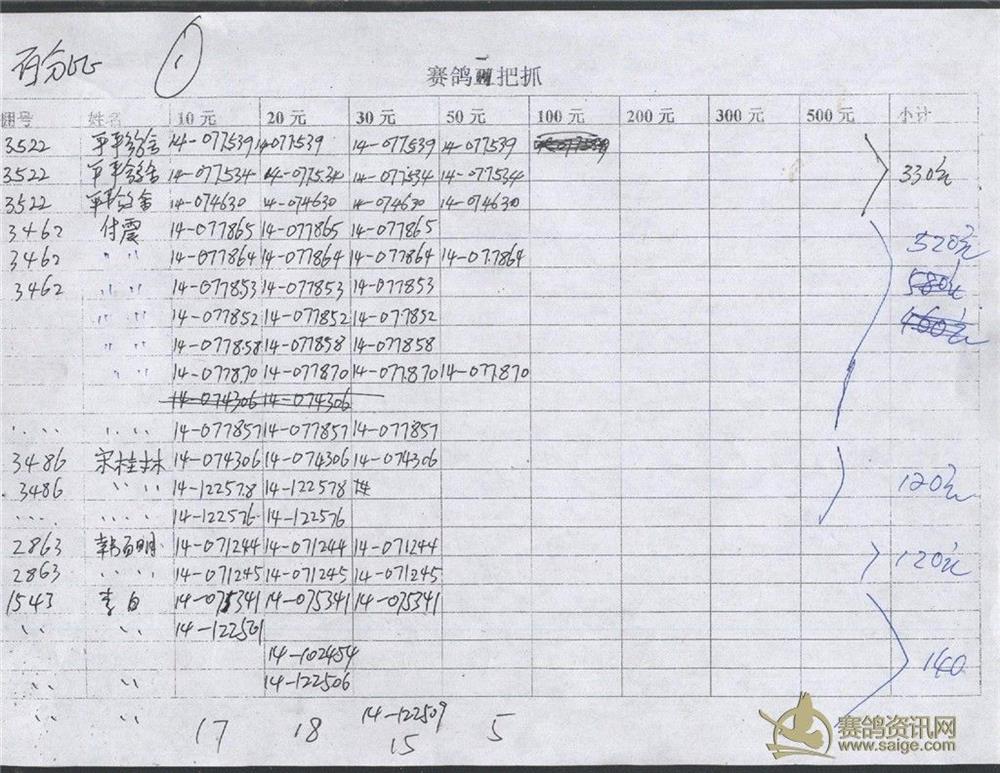 百分比 ①
赛鸽一把抓
棚号 姓名 10 元 20 元 30 元 50 元 100 元 200 元 300 元 500 元 小计
3522 平平鸽舍 14-077539 14-077539 14-077539 14-077539
3522 平平鸽舍 14-077534 14-077534 14-077534 14-077534 330元
3522 平平鸽舍 14-074630 14-074630 14-074630 14-074630
3462 付震 14-077865 14-077865 14-077865 520元
3462 〃 〃 14-077864 14-077864 14-077864 14-077864
3462 〃 〃 14-077853 14-077853 14-077853 580元
〃 〃 14-077852 14-077852 14-077852 460元
〃 〃 14-077858 14-077858 14-077858
〃 〃 14-077870 14-077870 14-077870 14-077870
14-074306 14-074306
〃 〃 〃 〃 14-077857 14-077857 14-077857
3486 宋桂林 14-074306 14-074306 14-074306
3486 〃 〃 14-122578 14-122578 120元
〃 〃 〃 〃 14-122576 14-122576
2863 韩 明 14-071244 14-071244 14-071244 120元
2863 〃 〃 14-071245 14-071245 14-071245
1543 李白 14-075341 14-075341 14-075341
〃 〃 14-122501
14-102454 140
〃 〃 14-122506
〃 〃 14-122509
17 18 15 5
赛鸽资讯网
www.saige.com